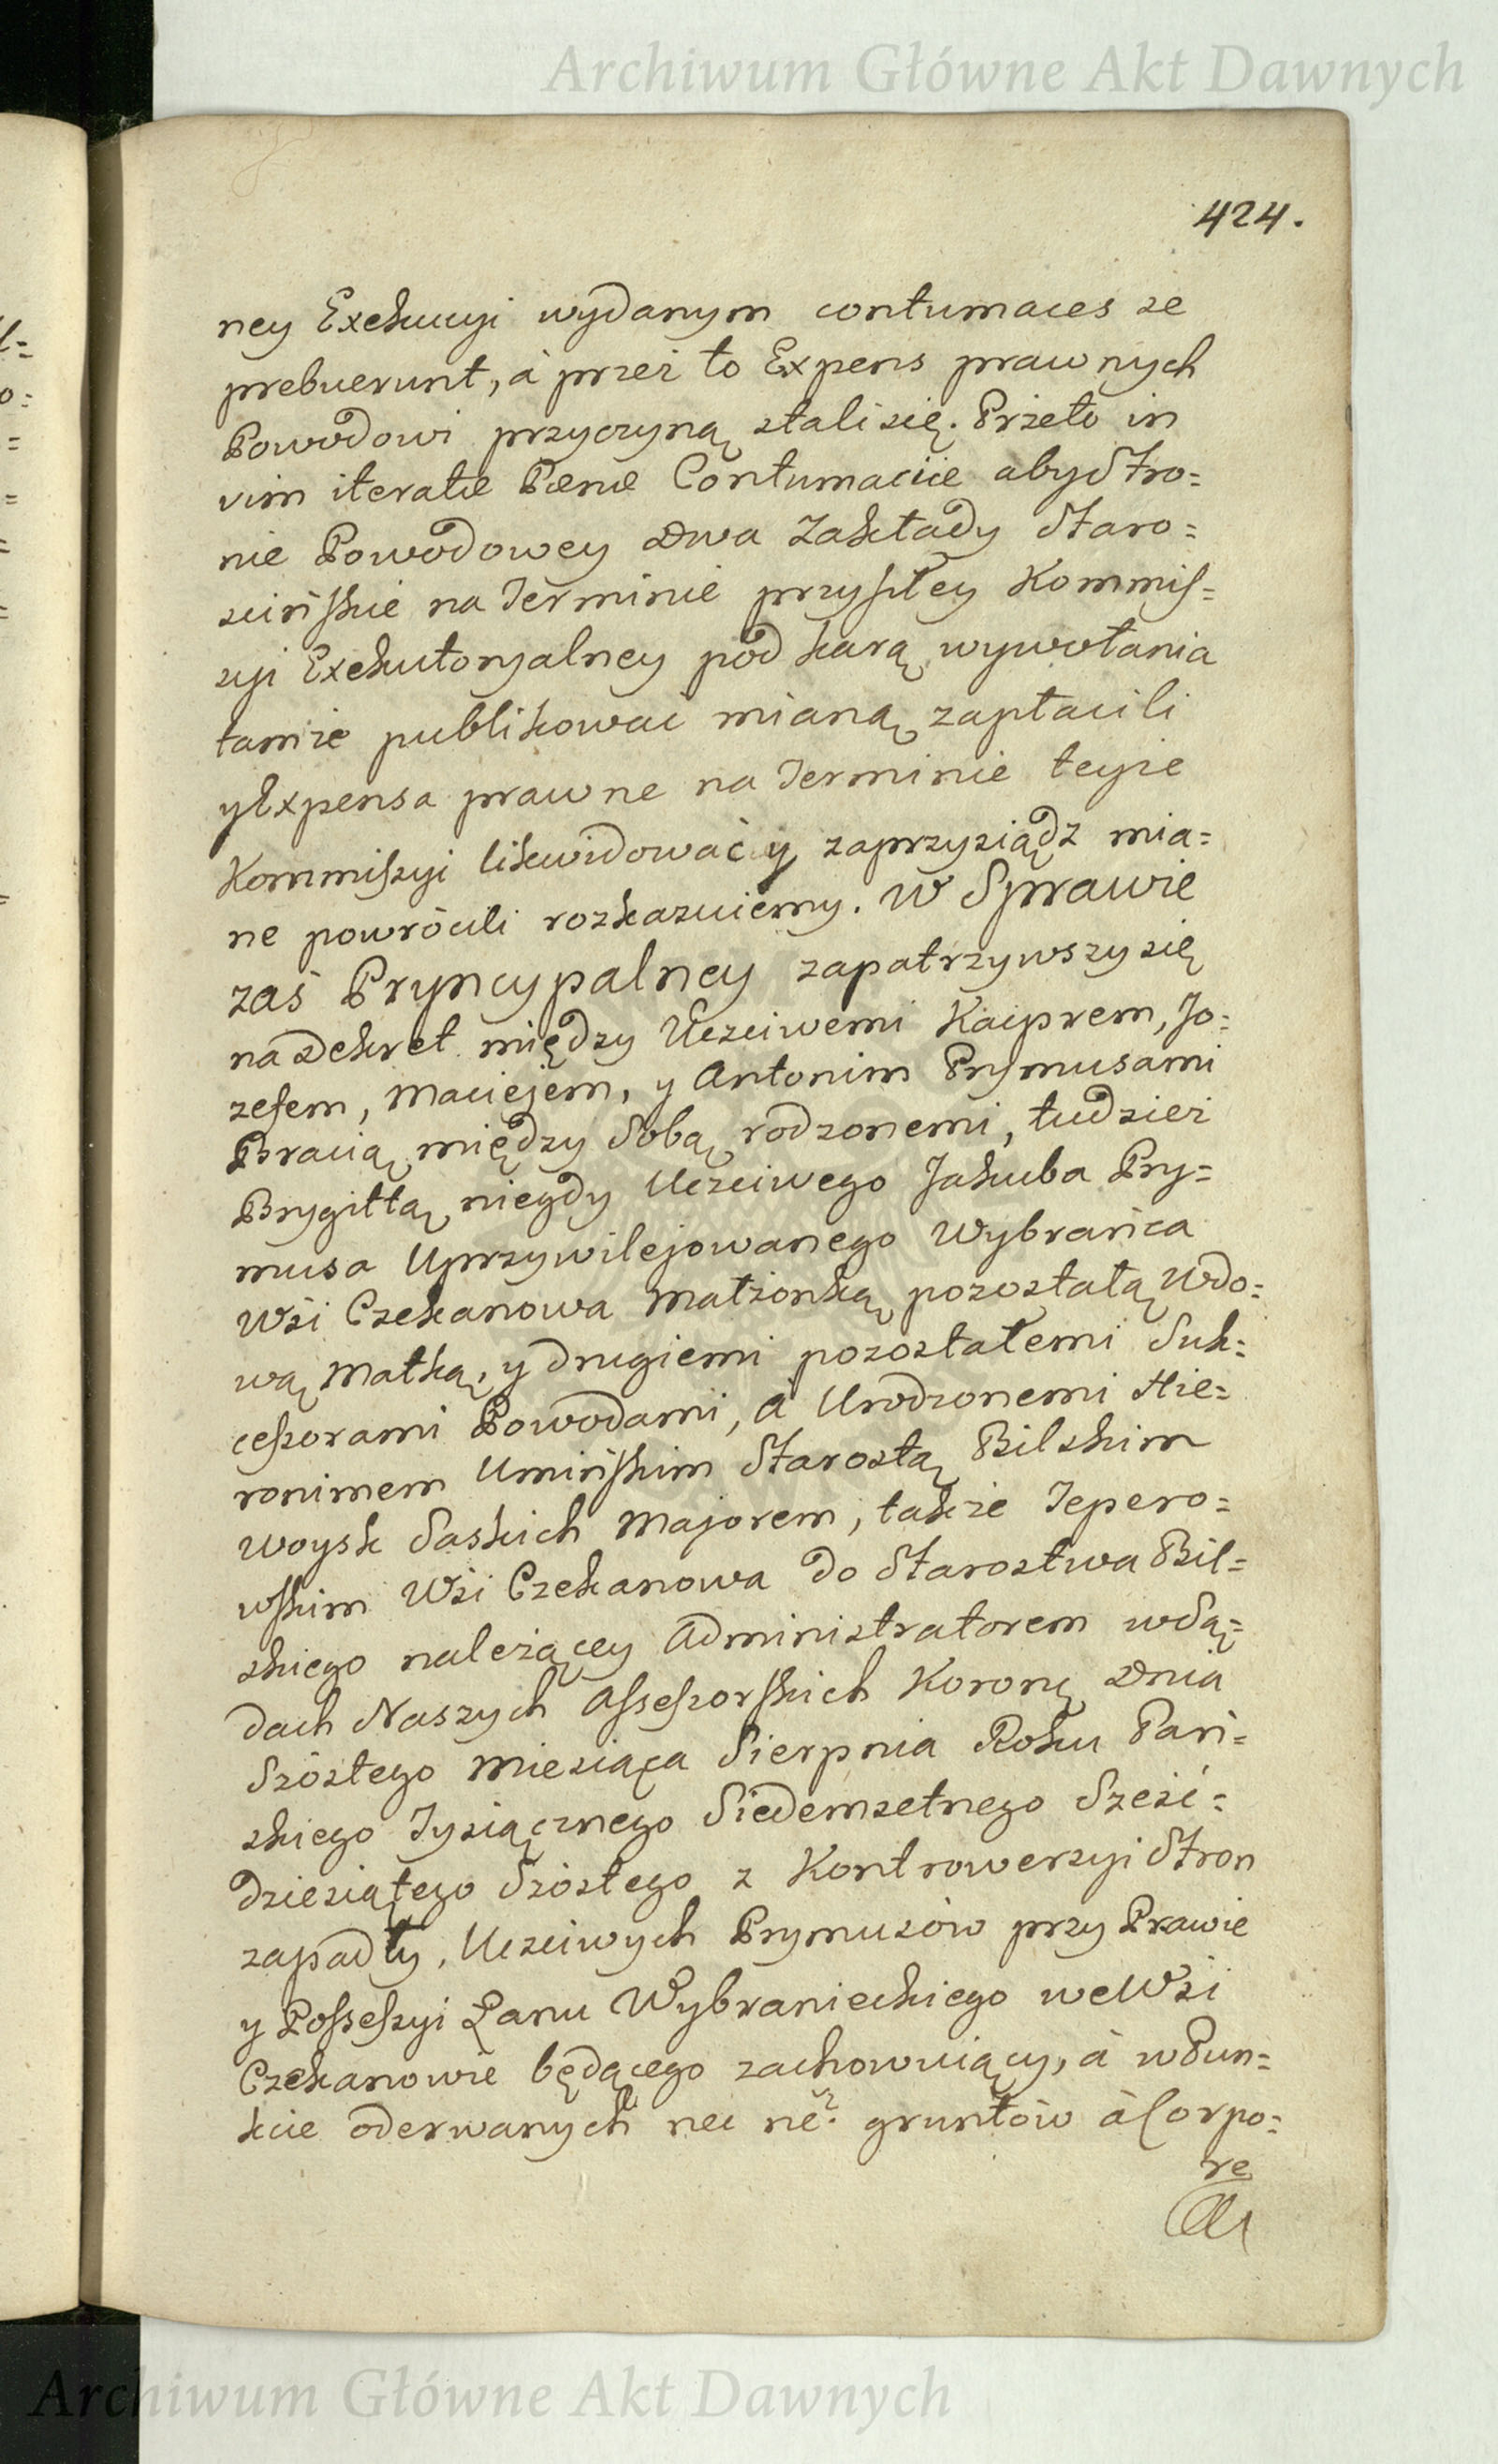 Archiwum Główne Akt Dawnych
424.
ney Exekucyi wydanym contumaces se
prebuerunt, à przez to Expens prawnych
Powodowi przyczyną stali się. Przeto in
vim iteratæ Pænæ Contumaciæ aby Stro=
nie Powodowey Dwa Zakłady Staro=
scińskie na Terminie przyszłey Kommis=
syi Exekutoryalney pod karą wywołania
tamże publikować mianą zapłacili
y Expensa prawne na Terminie teyże
Kommissyi likwidować y zaprzysiądz mia=
ne powrócili rozkazuiemy. W Sprawie
zaś Pryncypalney zapatrzywszy się
na Dekret między Uczciwemi Kacprem, Jo=
zefem, Maciejem, y Antonim Prymusami
Bracią między Sobą rodzonemi, tudzież
Brygittą niegdy Uczciwego Jakuba Pry=
musa Uprzywilejowanego Wybrańca
Wsi Czekanowa Małżonką pozostałą Wdo=
wą Matką, y drugiemi pozostałemi Suk=
cessorami Powodami, à Urodzonemi Hie=
ronimem Umińskim Starostą Bilskim
Woysk Saskich Majorem, także Tepero=
wskim Wsi Czekanowa do Starostwa Bil=
skiego należącey Administratorem w Są=
dach Naszych Assessorskich Koronę Dnia
Szóstego Miesiąca Sierpnia Roku Pań=
skiego Tysiącznego Siedemsetnego Sześć=
dziesiątego Szóstego z Kontrowersyi Stron
zapadły, Uczciwych Prymusów przy Prawie
y Possessyi Łanu Wybranieckiego we Wsi
Czekanowie będącego zachowuiący, à w Pun=
kcie oderwanych nec ne? gruntów à Corpo=
re
Archiwum Główne Akt Dawnych